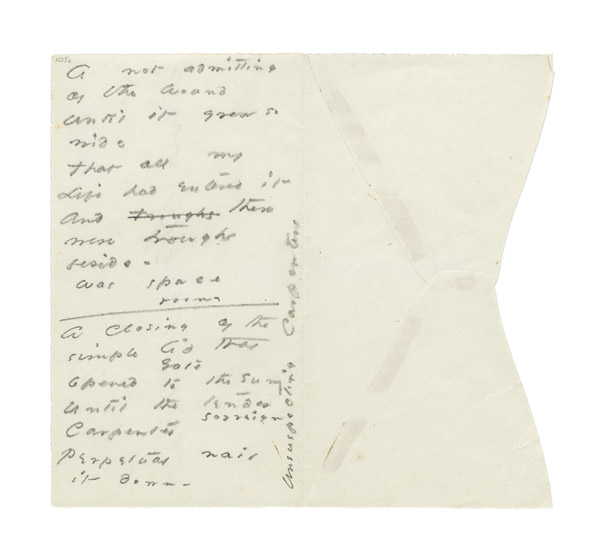 A not admitting
of the wound
Until it grew so
wide
That all my
Life had entered it
And troughs there
were troughs
beside -
was space
room
A closing of the
simple lid that
Gate
opened to the sun
Until the tender
sovreign
Carpenter
Perpetual nail
it down -
Unsuspecting Carpenters